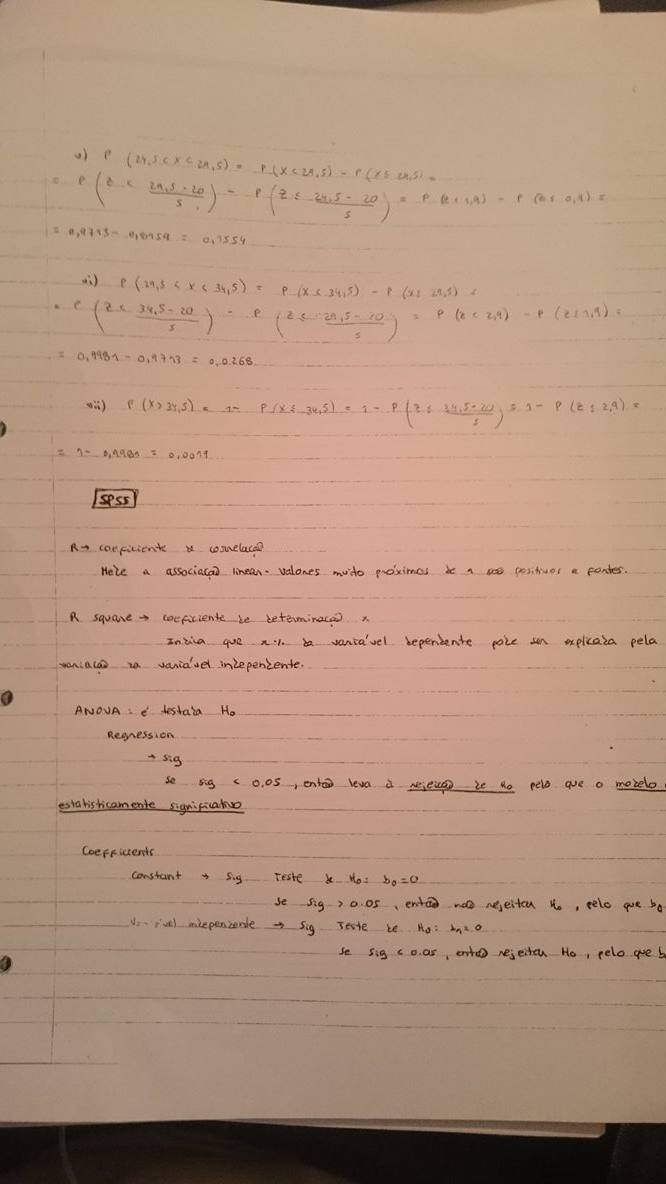 v) P (24,5 < X < 29,5) = P(X < 29,5) - P(X ≤ 24,5) =
= P (Z < 29,5-20/5) - P (Z ≤ 24,5-20/5) = P (Z < 1,9) - P (Z ≤ 0,9) =
= 0,9713 - 0,8159 = 0,1554
vi) P (29,5 < X < 34,5) = P(X < 34,5) - P(X ≤ 29,5) =
= P (Z < 34,5-20/5) - P (Z ≤ 29,5-20/5) = P (Z < 2,9) - P (Z ≤ 1,9) =
= 0,9981 - 0,9713 = 0,0268
vii) P(X > 34,5) = 1 - P(X ≤ 34,5) = 1 - P (Z ≤ 34,5-20/5) = 1 - P (Z ≤ 2,9) =
= 1 - 0,9981 = 0,0019
SPSS
R → coeficiente de correlação
Mede a associação linear. Valores muito próximos de 1 são positivos e fortes.
R square → coeficiente de determinação x
Indica que x% da variável dependente pode ser explicada pela
variação da variável independente.
ANOVA: é testada H0
Regression
→ sig
Se sig < 0.05, então leva à rejeição de H0 pelo que o modelo
estatisticamente significativo
Coefficients
Constant → Sig Teste de H0: b0=0
Se sig > 0.05, então não rejeitar H0, pelo que b0
Variável independente → Sig Teste de H0: b1=0
Se sig < 0.05, então rejeitar H0, pelo que b